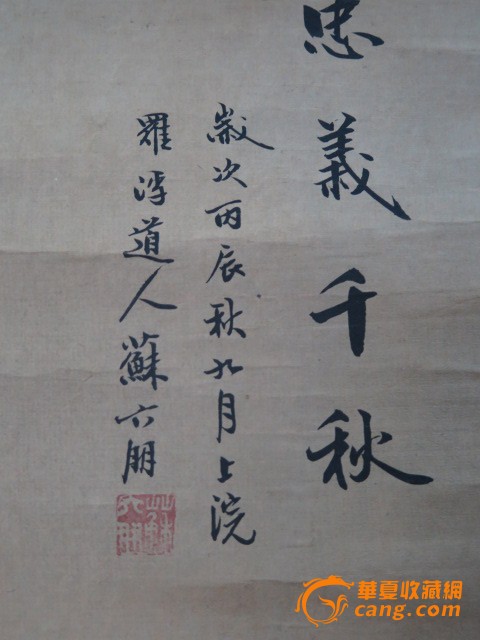 忠義千秋
歲次丙辰秋九月上浣
羅浮道人蘇六朋
蘇六朋
華夏收藏網
cang.com